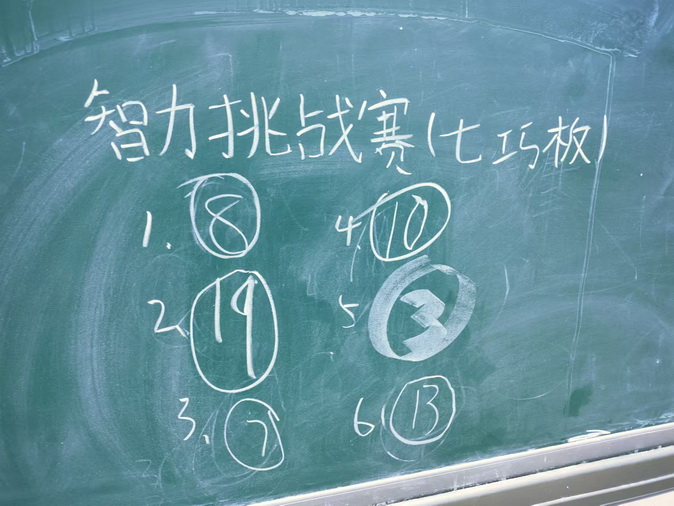 智力挑战赛(七巧板)
1. 8
2. 19
3. 7
4. 10
5 3
6. 13